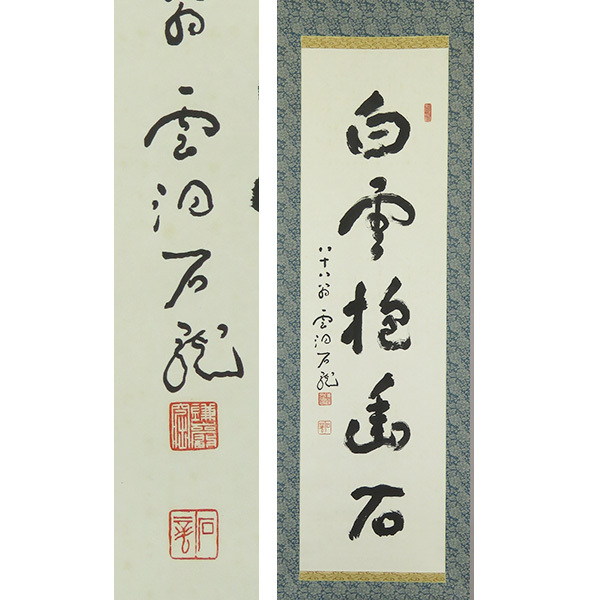 翁 雲洞石龍
白雲抱幽石
八十八翁 雲洞石龍